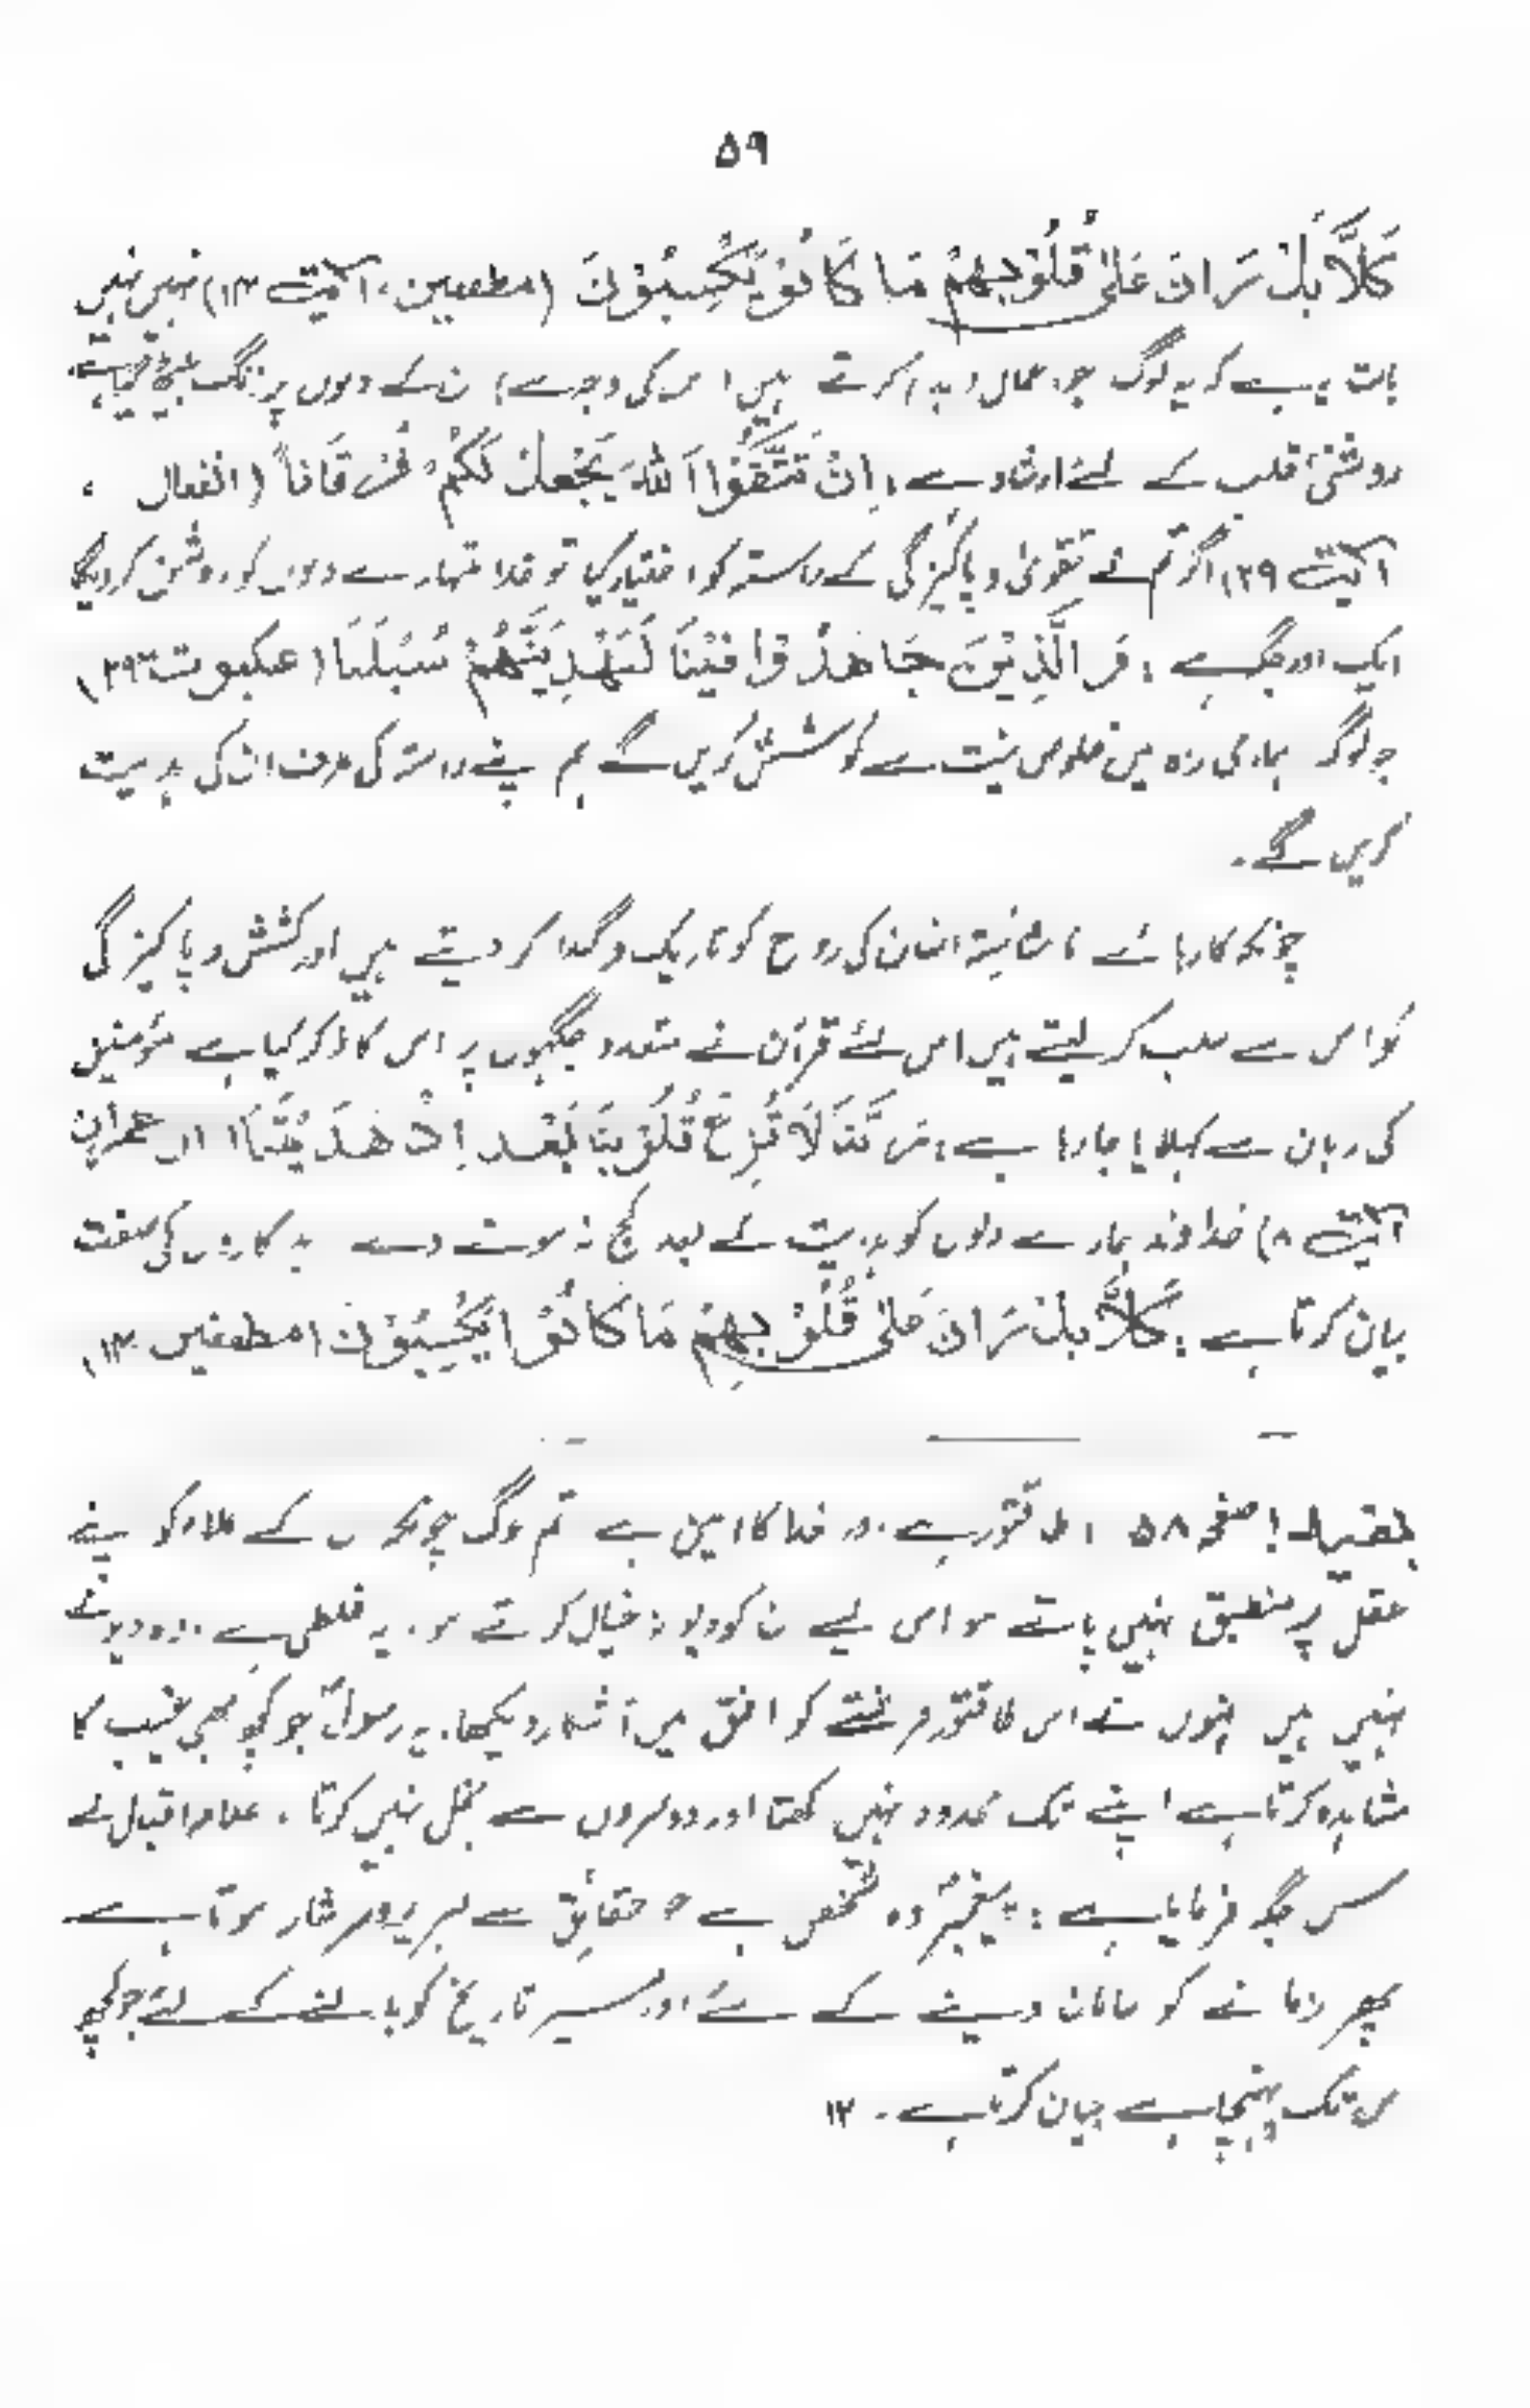 ۵۹
كَلَّا بَلْ رَانَ عَلٰى قُلُوْبِهِمْ مَا كَانُوْ يَكْسِبُوْنَ (مطففین، آیت ۱۴) نہیں نہیں
بات یہ ہے کہ یہ لوگ جو اعمال (بد) کرتے ہیں اس کی وجہ سے ان کے دلوں پر زنگ
روشنئ قلب کے لئے ارشاد ہے: اِنْ تَتَّقُوْا اللّٰهَ يَجْعَلْ لَكُمْ فُرْقَاناً (انفال ،
آیت ۲۹) اگر تم نے تقویٰ و پاکیزگی کے راستہ کو اختیار کیا تو خدا تمہارے دلوں کو روشن کر دیگا
ایک اور جگہ ہے : وَ الَّذِيْنَ جَاهَدُوْا فِيْنَا لَنَهْدِيَنَّهُمْ سُبُلَنَا (عنکبوت
جو لوگ ہماری راہ میں خلوص نیت سے کوشش کریں گے ہم اپنے راستہ کی طرف ان کی ہدایت
کریں گے ۔
چونکہ کارہائے ناشائستہ انسان کی روح کو تاریک و گندا کر دیتے ہیں اور کشش و پاکیزگی
کو اس سے سلب کر لیتے ہیں اس لئے قرآن نے متعدد جگہوں پر اس کا ذکر کیا ہے مؤمنین
کی زبان سے کہلایا جا رہا ہے: رَبَّنَا لَا تُزِغْ قُلُوْبَنَا بَعْدَ اِذْ هَدَيْتَنَا (آل عمران
آیت ۸) خداوندا ہمارے دلوں کو ہدایت کے بعد کج نہ ہونے دے بدکاروں کی صفت
بیان کرتا ہے : كَلَّا بَلْ رَانَ عَلٰى قُلُوْبِهِمْ مَا كَانُوْا يَكْسِبُوْنَ (مطففین ۱۴)
بقیہ صفحہ ۵۸ : طاقتور ہے اور خدا کا امین ہے تم لوگ چونکہ اس کے کو اپنے
عقل پر منطبق نہیں پاتے ہو اس لیے ان کو دیوانہ خیال کرتے ہو۔ یہ غلطی ہے۔ وہ دیوانے
نہیں ہیں انہوں نے اس طاقتور فرشتے کو افق میں آشکار دیکھا۔ یہ رسولؐ جو کچھ بھی غیب کا
مشاہدہ کرتا ہے اپنے تک محدود نہیں رکھتا اور دوسروں سے بخل نہیں کرتا ۔ علامہ اقبال نے
کس جگہ فرمایا ہے : پیغمبرؐ وہ شخص ہے جو حقائق سے لبریز و سرشار ہوتا ہے
پھر زمانے کو سامان دینے کے لئے اور مسیر تاریخ کو بدلنے کے لئے جو کچھ
اس تک پہنچا ہے بیان کرتا ہے ۔ ۱۲